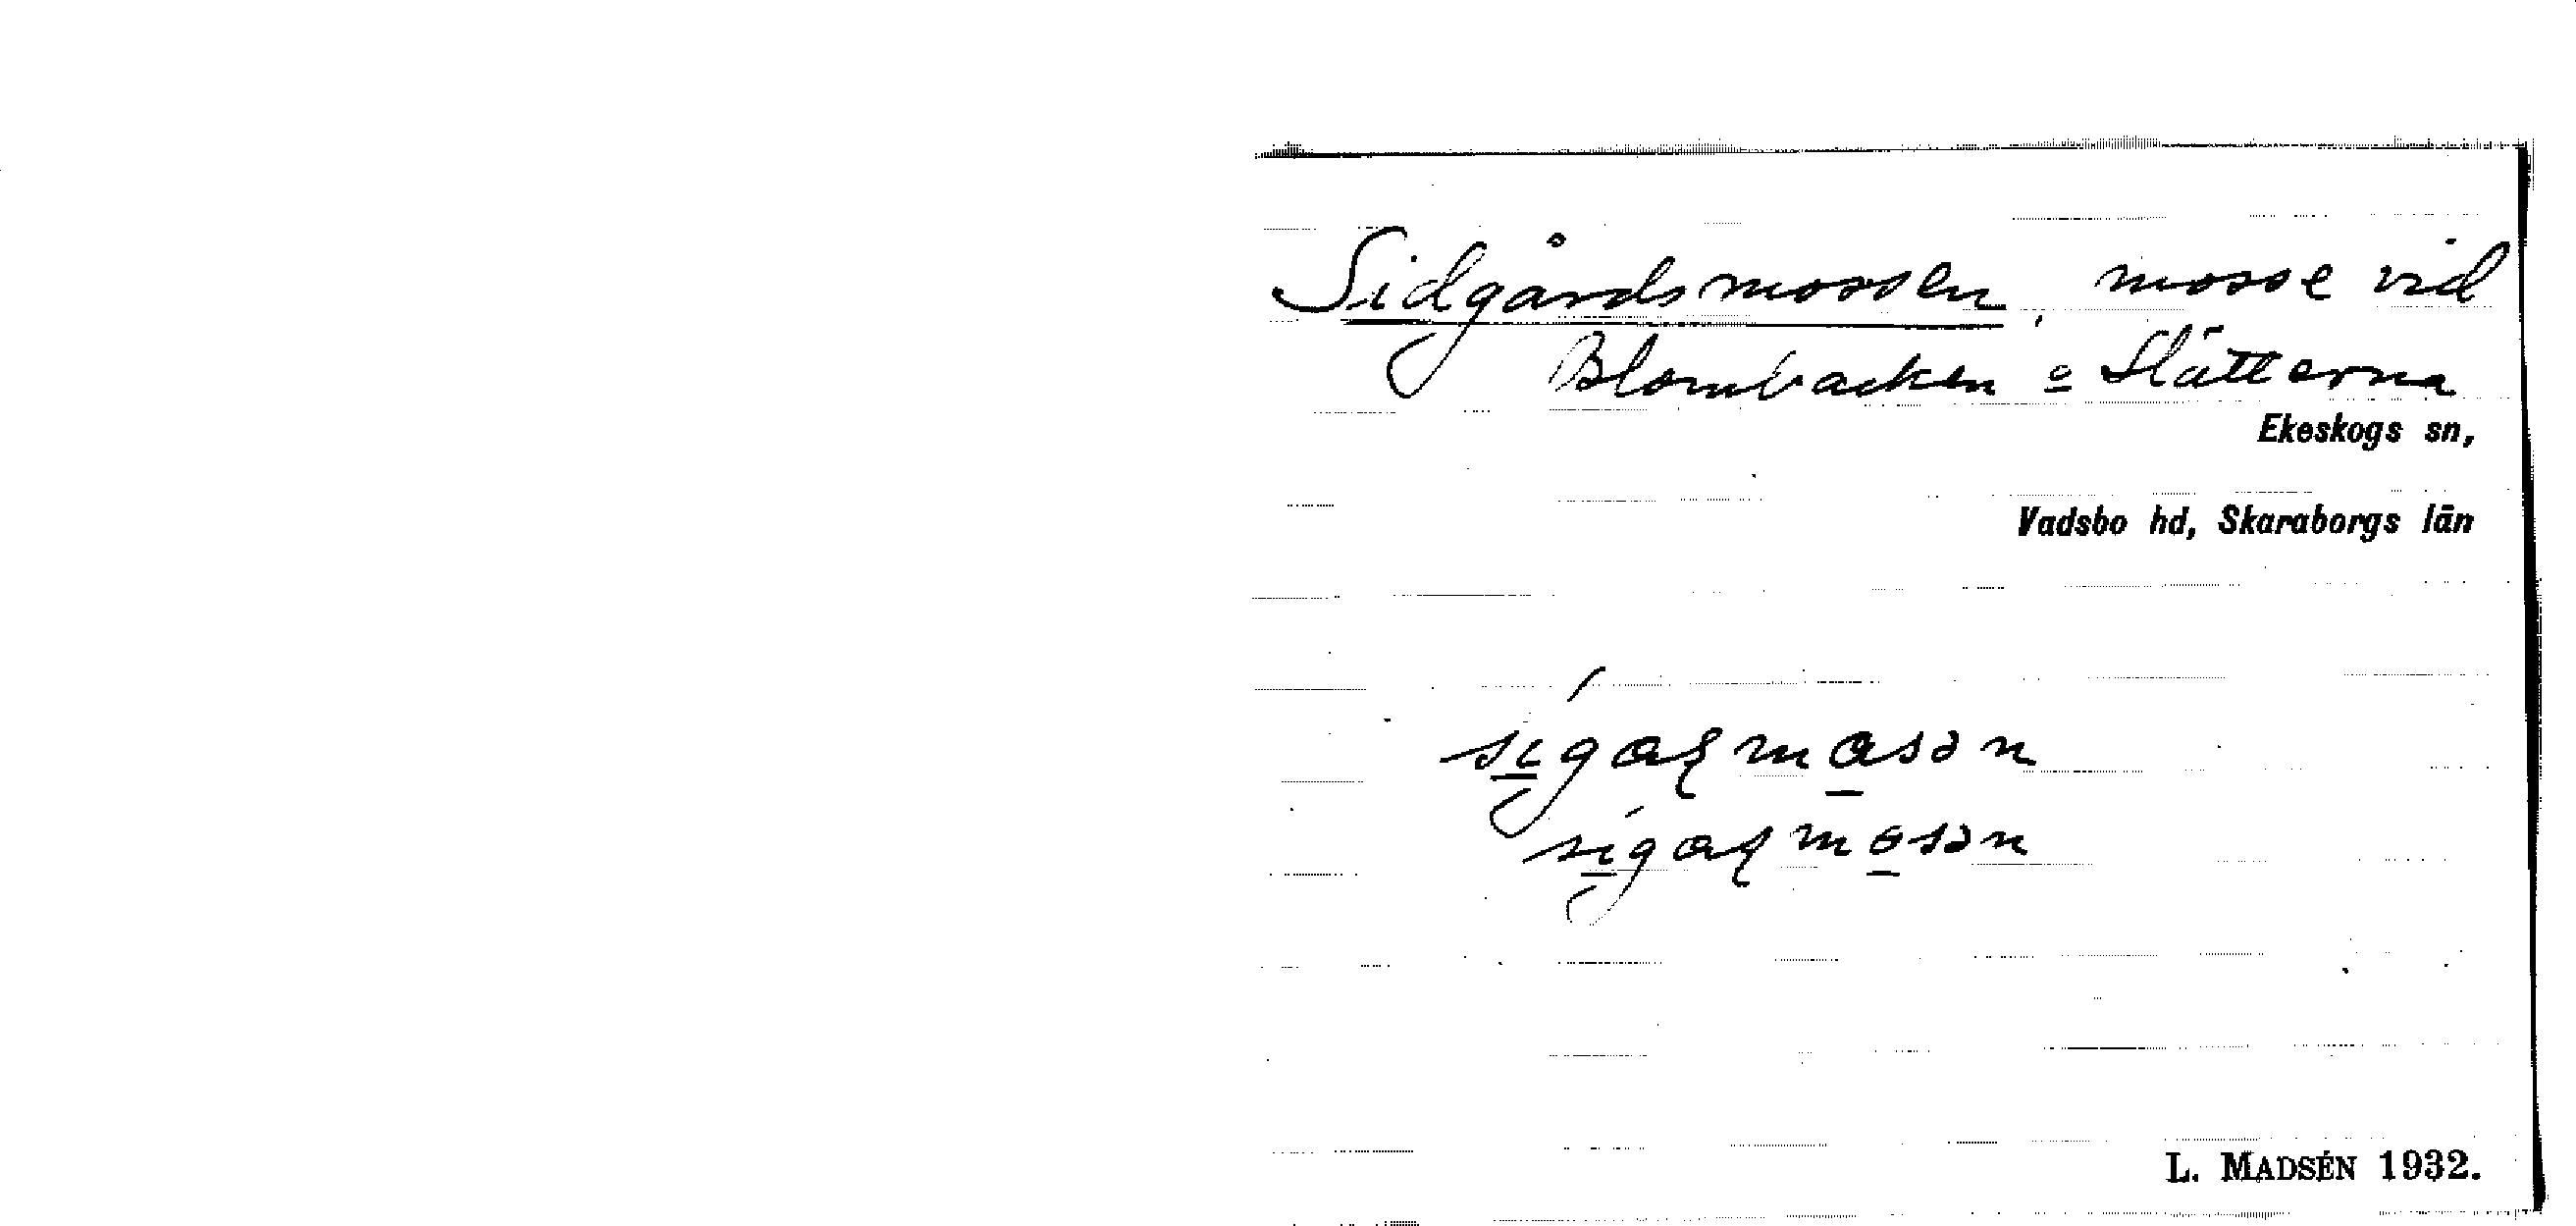 Sidgårdsmossen, mosse vid
Blombacken o Slätterna
Ekeskogs sn,
Vadsbo hd, Skaraborgs län
L. MADSÉN 1932.